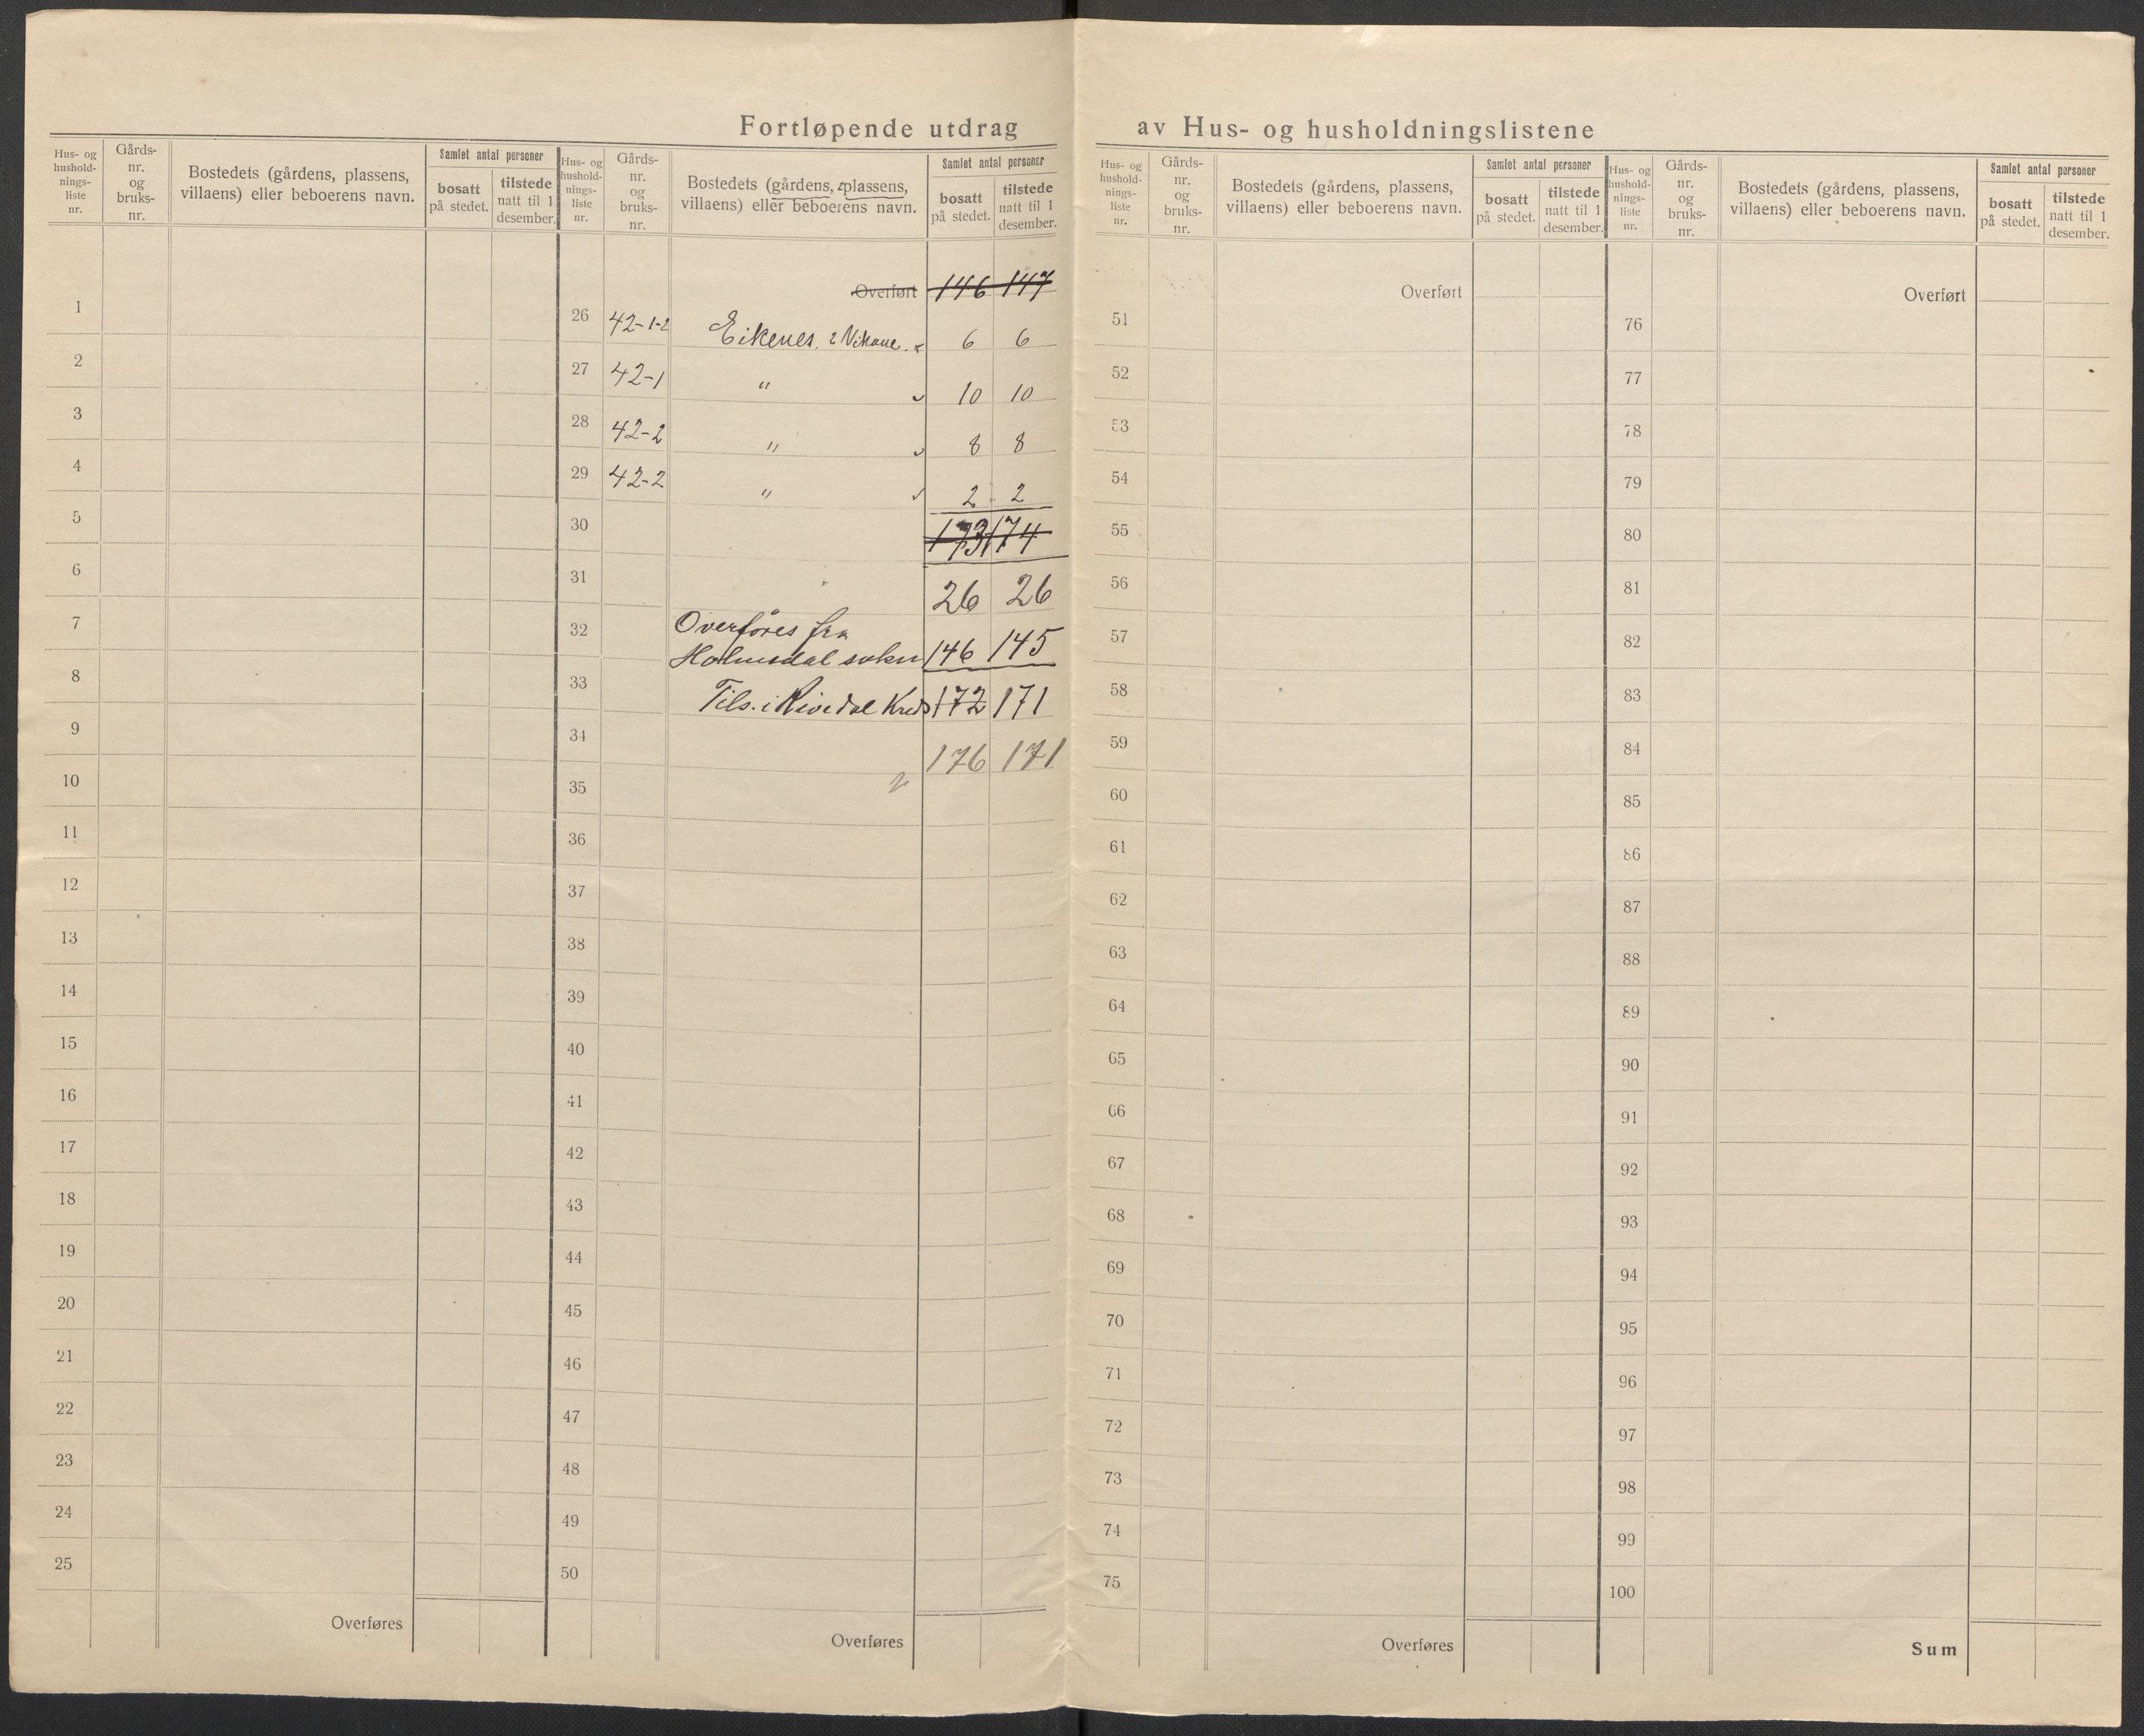 Fortløpende utdrag av Hus- og husholdningslistene
Hus- og hushold- nings- liste nr.
Gårds- nr. og bruks- nr.
Bostedets (gårdens, plassens, villaens) eller beboerens navn.
Samlet antal personer
bosatt på stedet.
tilstede natt til 1 desember.
Hus- og hushold- nings- liste nr.
Gårds- nr. og bruks- nr.
Bostedets (gårdens, plassens, villaens) eller beboerens navn.
Samlet antal personer
bosatt på stedet.
tilstede natt til 1 desember.
Hus- og hushold- nings- liste nr.
Gårds- nr. og bruks- nr.
Bostedets (gårdens, plassens, villaens) eller beboerens navn.
Samlet antal personer
bosatt på stedet.
tilstede natt til 1 desember.
Hus- og hushold- nings- liste nr.
Gårds- nr. og bruks- nr.
Bostedets (gårdens, plassens, villaens) eller beboerens navn.
Samlet antal personer
bosatt på stedet.
tilstede natt til 1 desember.
1
2
3
4
5
6
7
8
9
10
11
12
13
14
15
16
17
18
19
20
21
22
23
24
25
Overføres
Overført 146 147
26 42-1-2 Eikenes. 6 6
27 42-1 " 10 10
28 42-2 " 8 8
29 42-2 " 2 2
30 173 174
31 26 26
32 Overføres fra
Holmedal sokn 146 145
33 Tils. i Rivedal Kreds 172 171
34 176 171
35
36
37
38
39
40
41
42
43
44
45
46
47
48
49
50
Overføres
Overført
51
52
53
54
55
56
57
58
59
60
61
62
63
64
65
66
67
68
69
70
71
72
73
74
75
Overføres
Overført
76
77
78
79
80
81
82
83
84
85
86
87
88
89
90
91
92
93
94
95
96
97
98
99
100
Sum